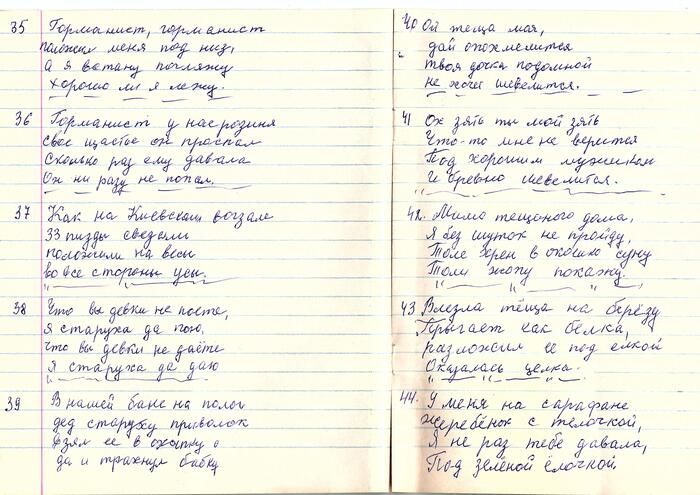 35 Гормонист, гармонист
положил меня под низ,
а я встану погляжу
хорошо ли я лежу.
36 Гормонист у нас розиня
свое щастье он проспал
Сколько раз ему давала
Он ни разу не попал.
37 Как на Киевском вогзале
33 пизды связали
положили на весы
во все стороны усы.
38 Что вы девки не поете,
я старуха да пою,
что вы девки не даёте
я старуха да даю
39 В нашей бане на полог
дед старуху приволок
взял ее в охапку
да и трахнул бабку
40 Ой теща моя,
дай опохмелится
твоя дочка подомной
не хочет шевелится.
41 Ох зять ты мой зять
Что-то мне не верится
Под хорошим мужиком
И бревно шевелится.
42. Мимо тещоного дома,
Я без шуток не пройду,
Толе хрен в окошко суну
Толи жопу покажу.
43 Влезла тёща на берёзу
Прыгает как белка,
разложил ее под елкой
Оказалась целка.
44. У меня на сарафане
жеребёнок с тёлочкой,
Я не раз тебе давала,
Под зелёной ёлочкой.